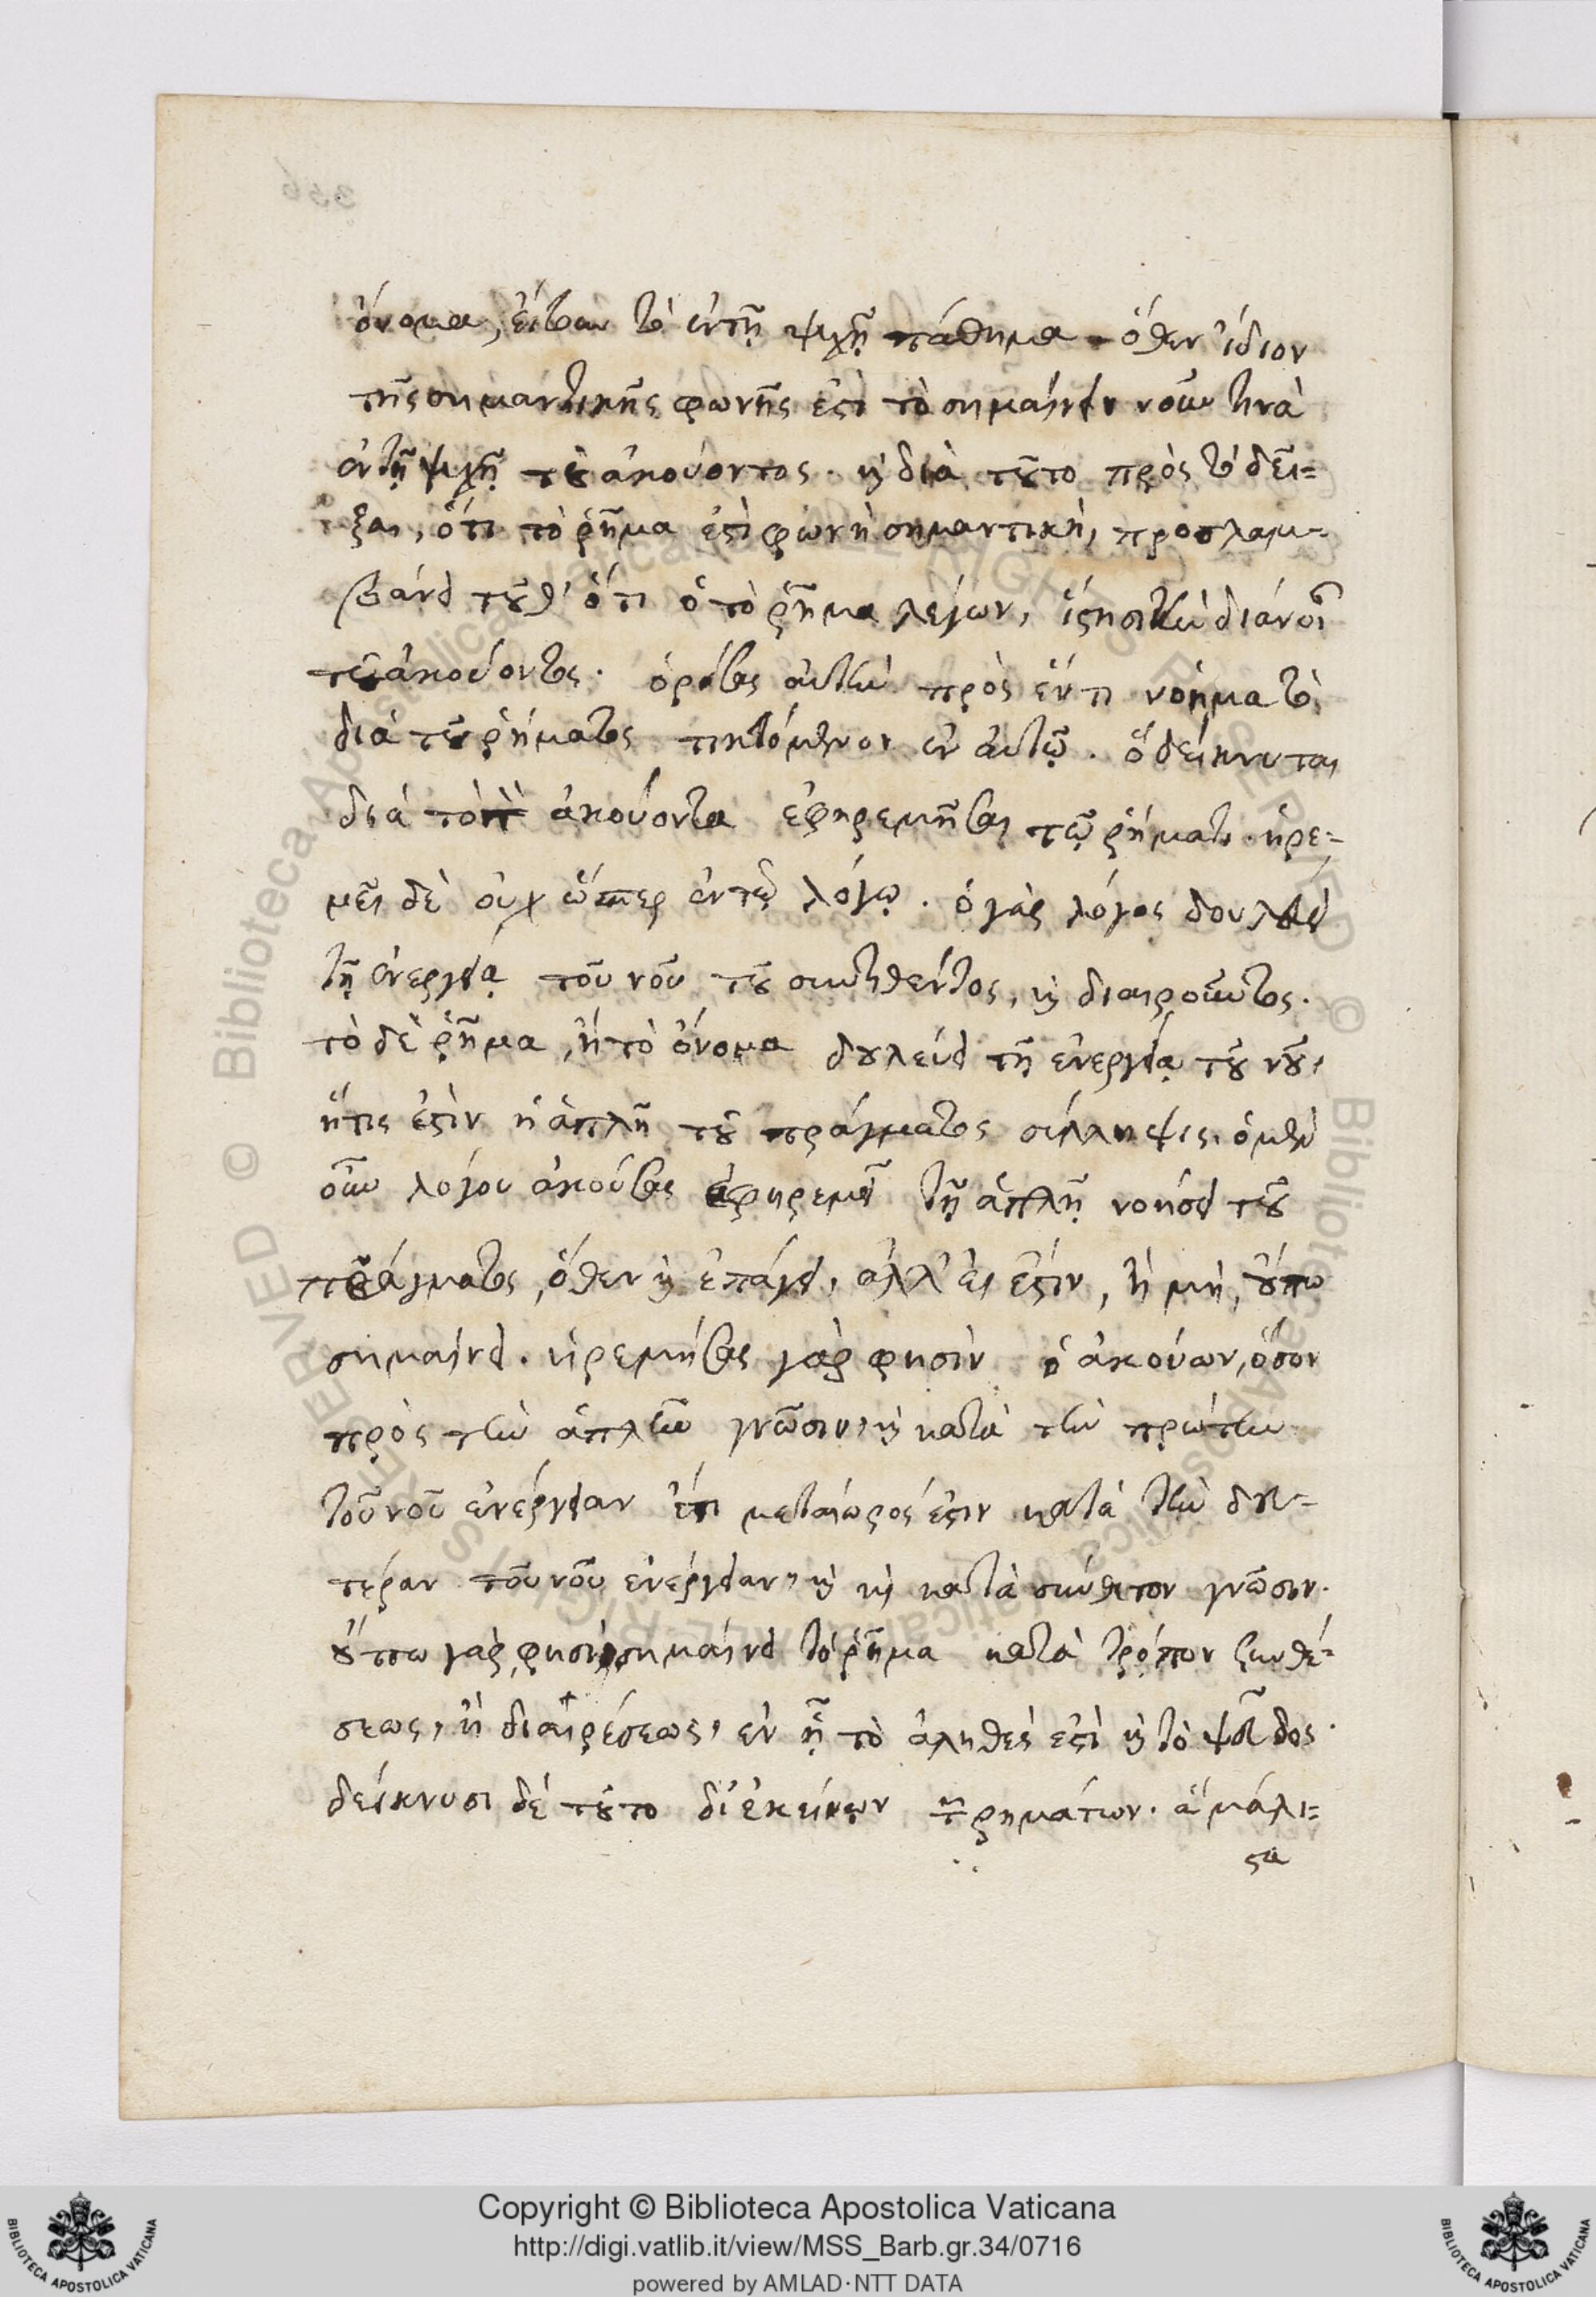 ὄνομα, εἴτουν τὸ ἐν τῇ ψυχῇ πάθημα. ὅθεν ἴδιον
τῆς σημαντικῆς φωνῆς ἐστὶ τὸ σημαίνειν νοῦν τινὰ
ἐν τῇ ψυχῇ τοῦ ἀκούοντος. καὶ διὰ τοῦτο πρὸς τὸ δεῖ=
ξαι, ὅτι τὸ ῥῆμα ἐστὶ φωνὴ σημαντικὴ, προσλαμ=
βάνει τοῦθ' ὅτι ὁ τὸ ῥῆμα λέγων, ἵστησι τὴν διάνοι
τοῦ ἀκούοντος. αὐτὴν πρὸς ἕν τι νόημα τὸ
διὰ τοῦ ῥήματος τικτόμενον ἐν αὐτῷ. ὃ δείκνυται
διὰ τὸ ἀκούοντα ἐφηρεμῆσαι τῷ ῥήματι. ἠρε=
μεῖ δὲ οὐχ ὥσπερ ἐν τῷ λόγῳ. ὁ γὰρ λόγος δουλεύει
τῇ ἐνεργείᾳ τοῦ νοῦ τοῦ συντιθέντος, καὶ διαιροῦντος.
τὸ δὲ ῥῆμα, ἢ τὸ ὄνομα δουλεύει τῇ ἐνεργείᾳ τοῦ νοῦ,
ἥτις ἐστὶν ἡ ἁπλῆ τοῦ πράγματος σύλληψις. ὁ μὲν
οὖν λόγου ἀκούσας ἐφηρεμεῖ τῇ ἁπλῇ νοήσει τοῦ
πράγματος, ὅθεν καὶ ἐπάγει, ἀλλ' εἰ ἔστιν, ἢ μὴ, οὔπω
σημαίνει. ἠρεμήσας γάρ φησὶν ὁ ἀκούων, ὅσον
πρὸς τὴν ἁπλῆν γνῶσιν, καὶ κατὰ τὴν πρώτην
τοῦ νοῦ ἐνέργειαν ἔτι μεταίωρός ἐστιν κατὰ τὴν δευ=
τέραν τοῦ νοῦ ἐνέργειαν, καὶ κατὰ σύνθετον γνῶσιν.
οὔπω γάρ, φησὶ, σημαίνει τὸ ῥῆμα κατὰ τρόπον συνθέ=
σεως, ἢ διαιρέσεως, ἐν ᾗ τὸ ἀληθές ἐστὶ καὶ τὸ ψεῦδος.
δείκνυσι δὲ τοῦτο δι' ἐκείνων τῶν ῥημάτων. ἃ μάλι=
στα
Copyright © Biblioteca Apostolica Vaticana
http://digi.vatlib.it/view/MSS_Barb.gr.34/0716
powered by AMLAD·NTT DATA